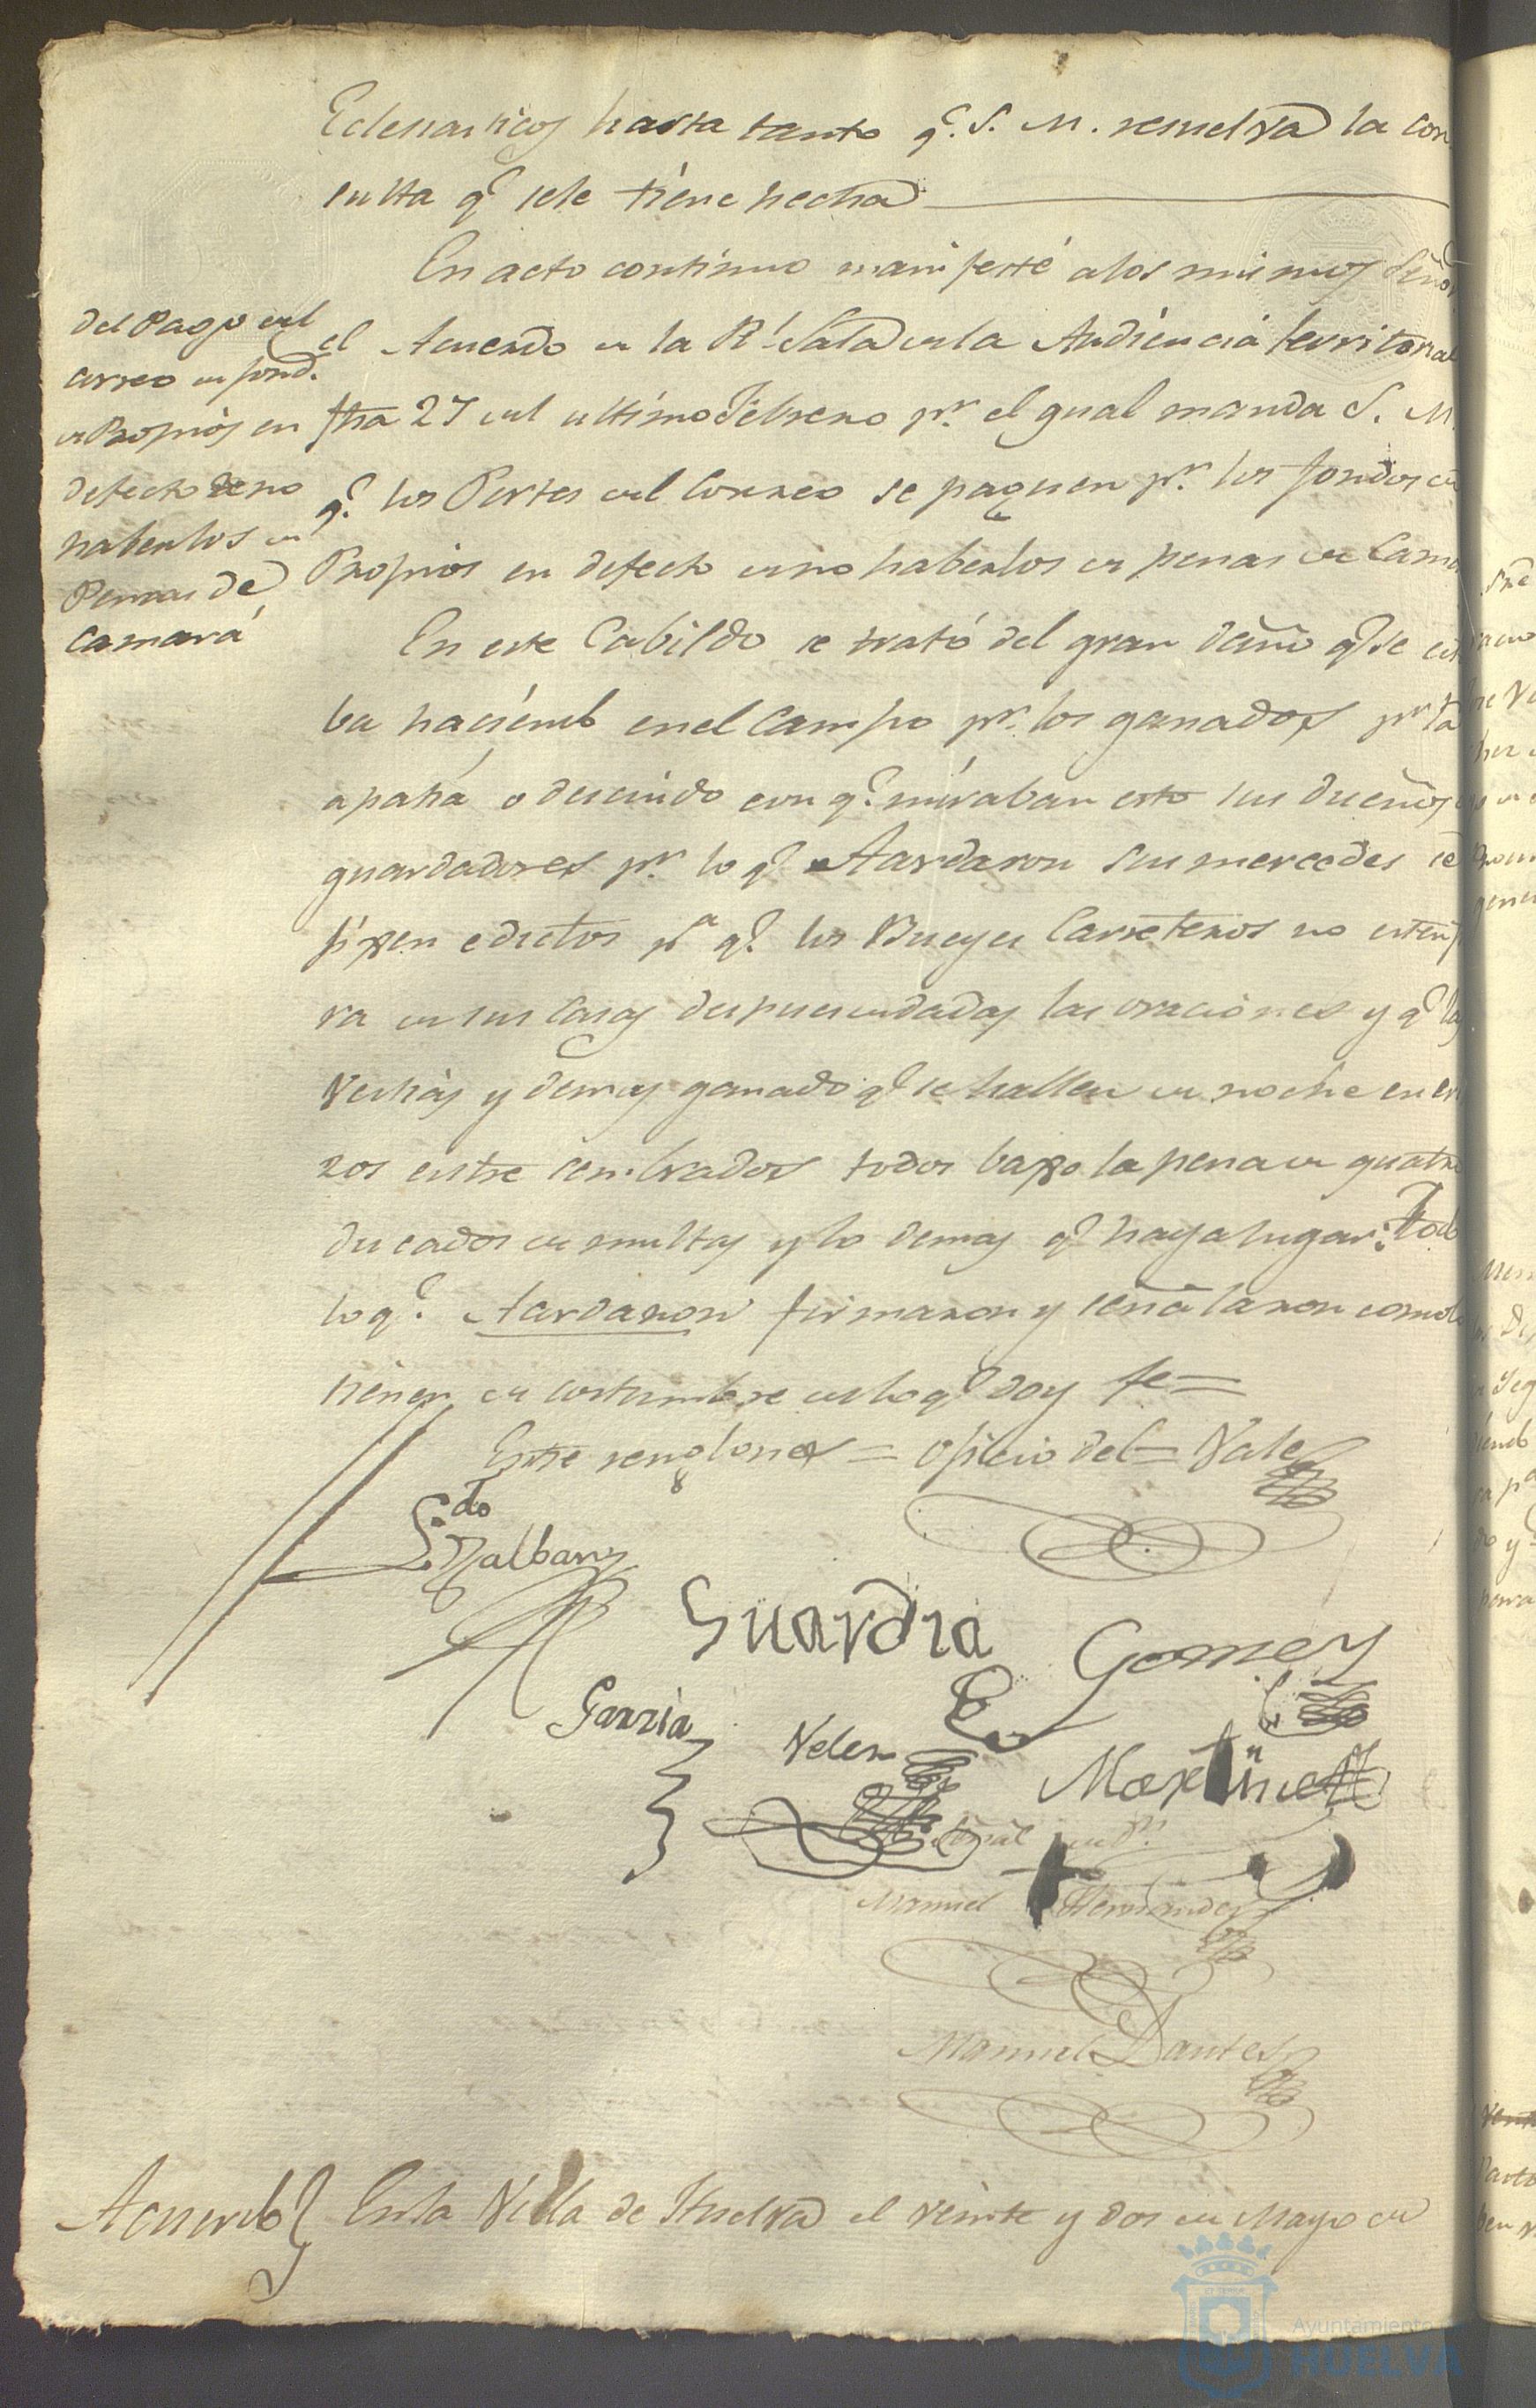 Eclesiasticos hasta tanto q.e S. M. resuelva la con
sulta q.e sele tiene hecha
En acto continuo manifesté alos mismos Señor
el Acuerdo de la R.l Sala dela Audiencia territorial
fha 27 del ultimo Febrero p.r el qual manda S. M.
q.e los Portes del Correo se paguen p.r los fondos de
Propios en defecto deno haberlos de penas de Cama
del Pago del
correo de fond.
de Propios en
defecto de no
haberlos de
Penas de
Camara
En este Cabildo se trató del gran daño q.e se esta
ba haciendo enel Campo p.r los ganados p.r la
apatia o descuido con q.e miraban esto sus dueños
guardadores p.r lo q.e Acordaron sus mercedes se
fixen edictos p.a q.e los Bueyes Carreteros no esten
ra de sus Casas despues de dadas las oraciones y q.e las
Vestias y demas ganado q.e se hallen de noche en er
zos entre sembrados todos baxo la pena de quatro
ducados de multas y lo demas q.e haya lugar: Todo
lo q.e Acordaron firmaron y señalaron como lo
tienen de costumbre de lo q.e doy fe=
Entre renglones = oficio del = Vale
L.do Malbany
Guardia
Gomez
Garzia
Velez
Martinez
Señal de D.n
Manuel Hernandez
Manuel Dantes
Acuerdo
En la Villa de Huelva el veinte y dos de Mayo de
Ayuntamiento
HUELVA